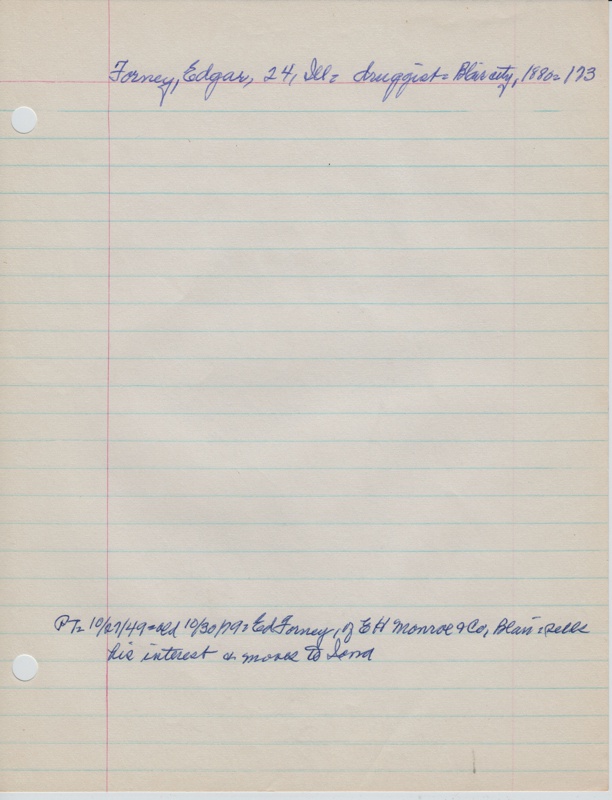 Forney, Edgar, 24, Ill= druggist= Blair city, 1880= 173
PT= 10/27/49=old 10/30/79= Ed Forney, of E H Monroe & Co, Blair = sells
his interest & moves to Iowa